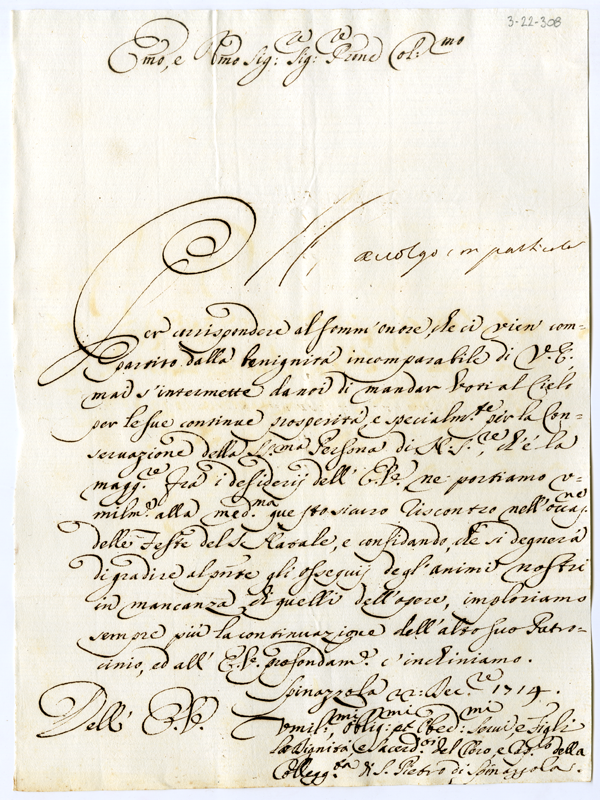 3-22-308
Emo, e Rmo Sig:re Sig:re Prone Col:mo
accolgo con particolar
Per corrispondere al somm'onore, che ci vien com=
partito dalla benignità incomparabile di V.E.
mai s'intermette da noi di mandar voti al Cielo
per le sue continue prosperità, e specialm.te per la Con=
servazione della SS.ma Persona di N.S.re, ch'è la
magg.re fra i desiderij dell' E.V. ne portiamo v=
milm.e alla med.ma questo sicuro riscontro nell'occas.ne
delle Feste del S. Natale, e confidando, che si degnerà
di gradire al pnte gli ossequij degl'animi nostri
in mancanza di quelli dell'opere, imploriamo
sempre più la continuazione dell'alto suo Patro=
cinio, ed all' E.V. profondam.e c'inchiniamo.
Spinazzola 22 Dec.re 1714.
Dell' E.V.
vmil.mi oblig.mi et Obed.mi Servi e Figli
La Dignità e Sacerd.oti del Coro, e della
Colleg.ta di S. Pietro di Spinazzola.